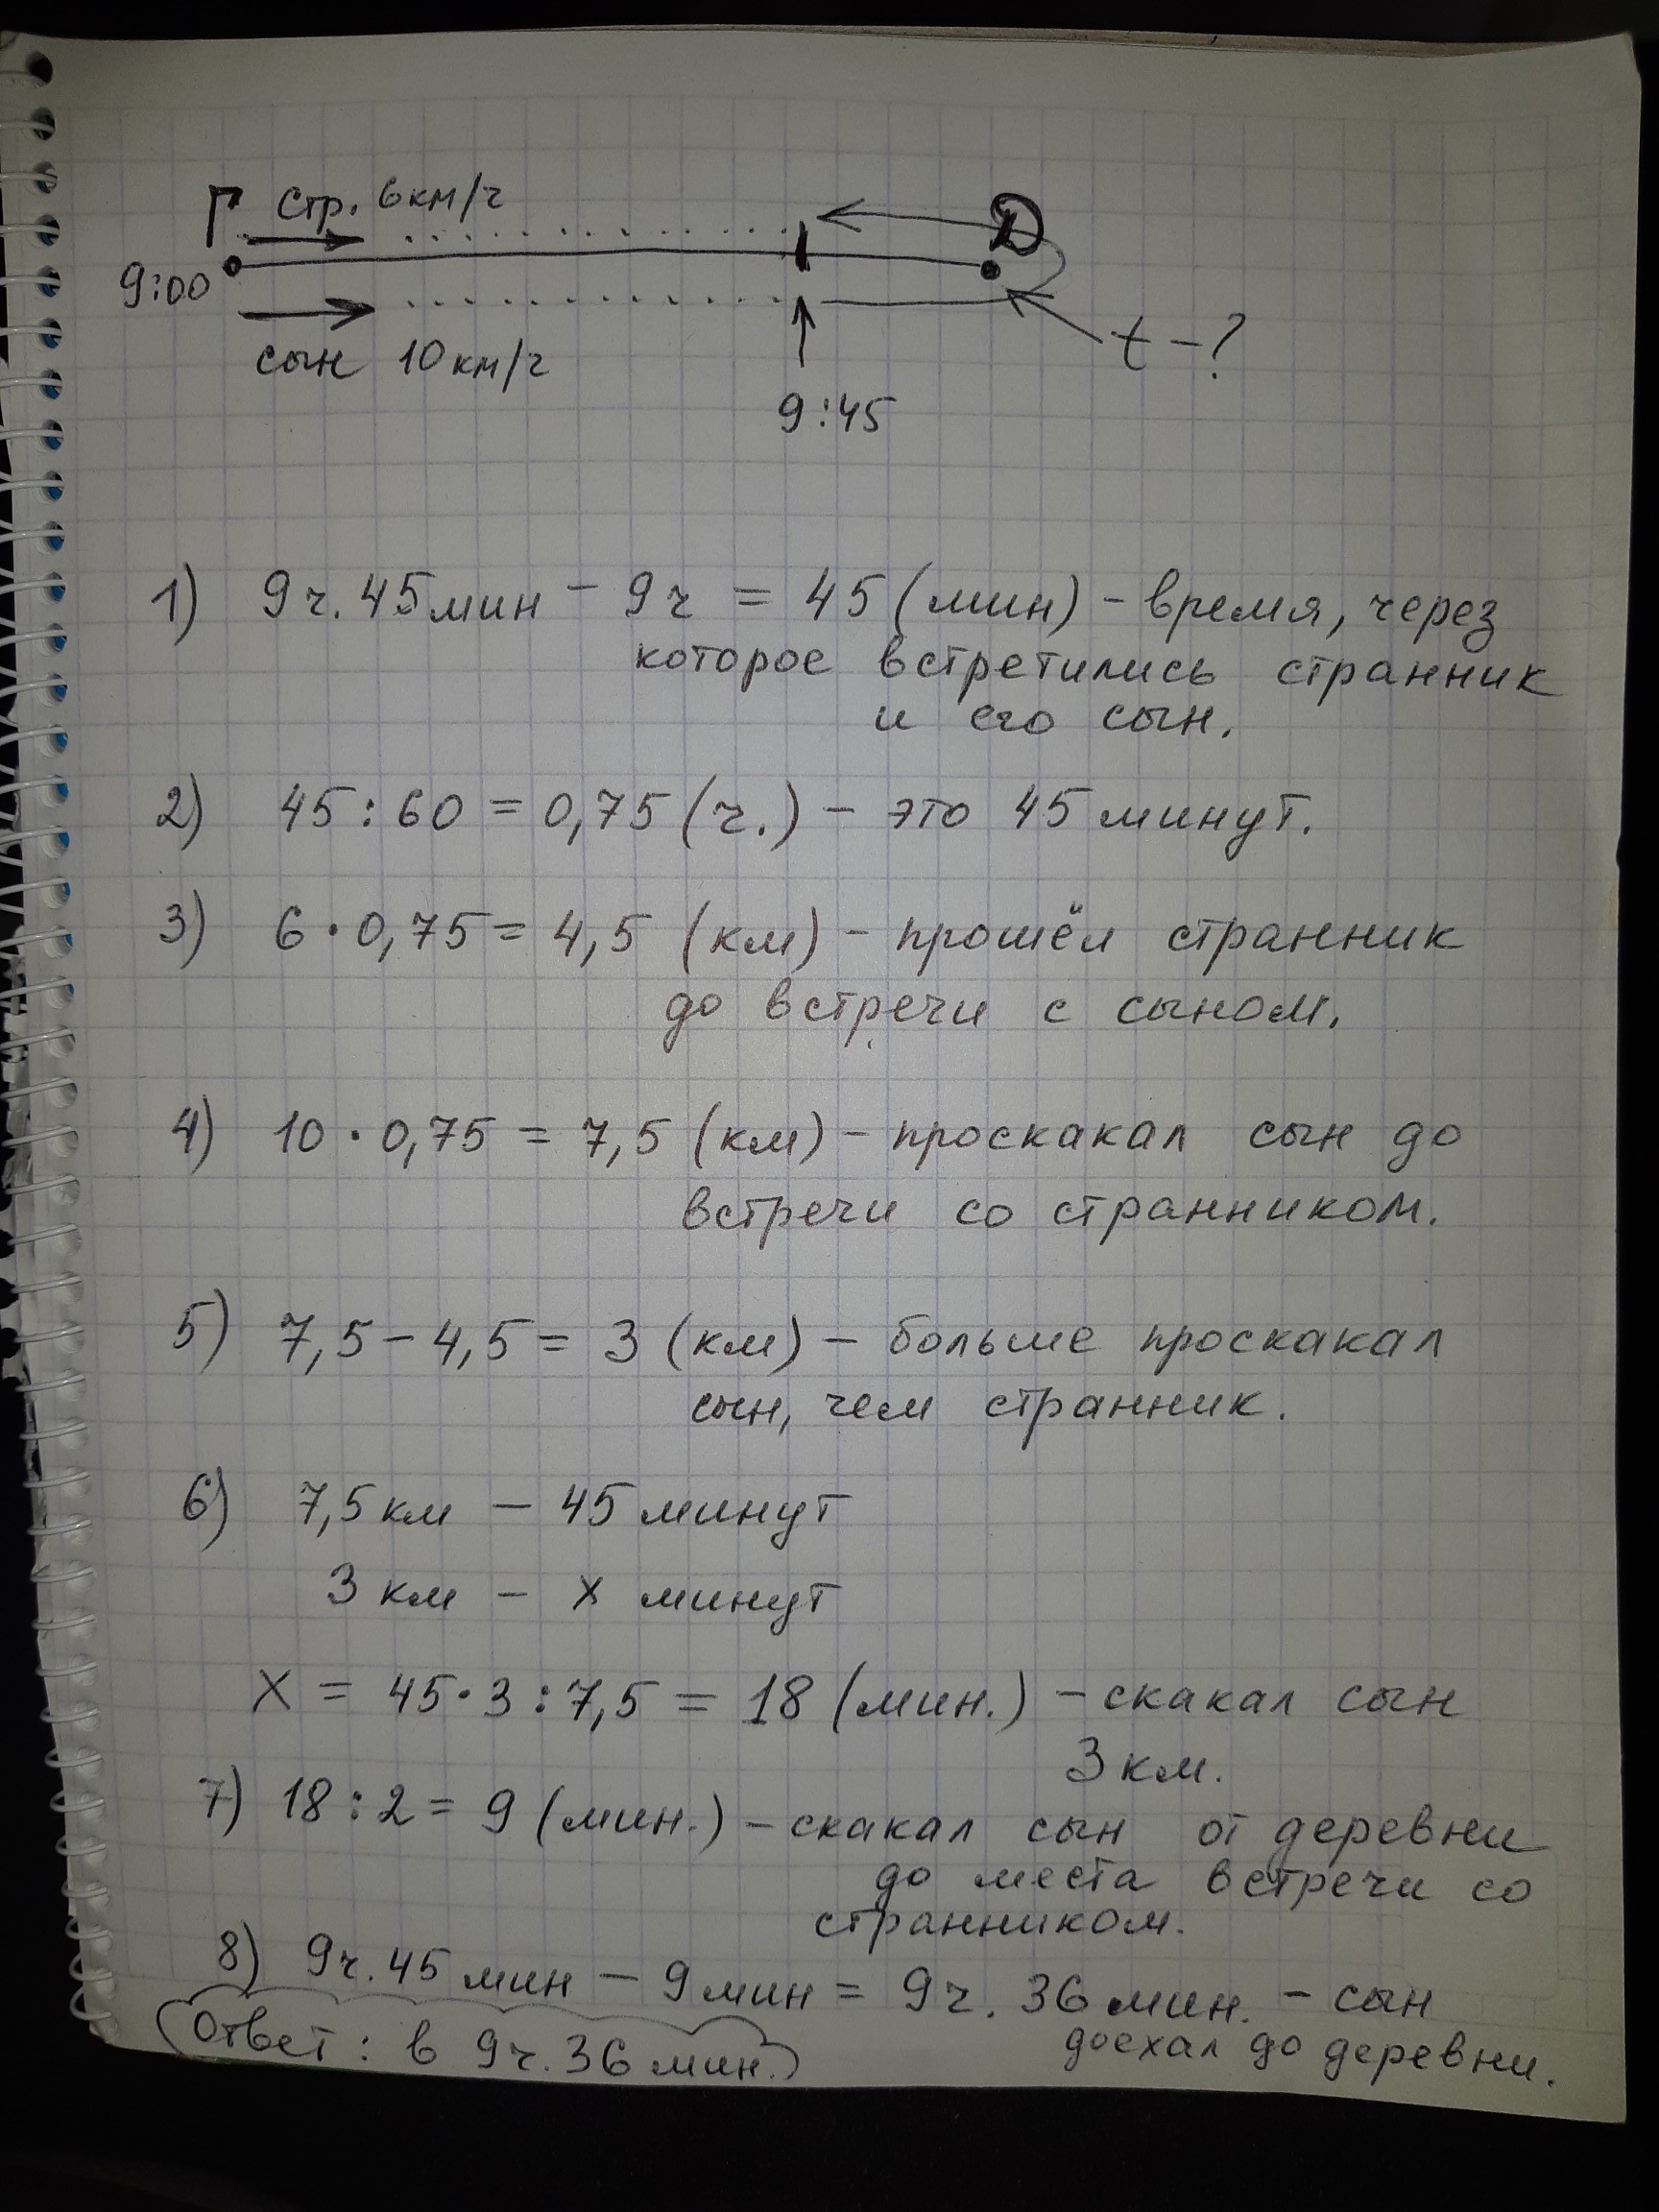 Г стр. 6 км/ч Д
9:00
сын 10 км/ч t - ?
9:45
1) 9 ч. 45 мин - 9 ч = 45 (мин) - время, через
которое встретились странник
и его сын.
2) 45 : 60 = 0,75 (ч.) - это 45 минут.
3) 6 · 0,75 = 4,5 (км) - прошёл странник
до встречи с сыном.
4) 10 · 0,75 = 7,5 (км) - проскакал сын до
встречи со странником.
5) 7,5 - 4,5 = 3 (км) - больше проскакал
сын, чем странник.
6) 7,5 км - 45 минут
3 км - х минут
X = 45 · 3 : 7,5 = 18 (мин.) - скакал сын
3 км.
7) 18 : 2 = 9 (мин.) - скакал сын от деревни
до места встречи со
странником.
8) 9 ч. 45 мин - 9 мин = 9 ч. 36 мин. - сын
доехал до деревни.
Ответ: в 9 ч. 36 мин.